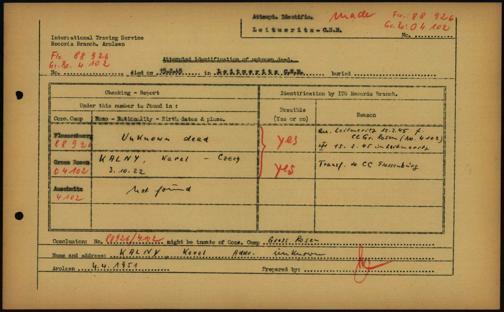 Attempt. Identific. made Fl. 88 926
Leitmeritz - C.S.R. Gr. R. 04 102
No.
International Tracing Service
Records Branch, Arolsen
Fl. 88 926
Attempted identification of unknown dead.
Gr. R. 4 102
No. died on in Leitmeritz C.S.R. buried
Checking - Report
Identification by ITS Records Branch.
Under this number is found in:
Possible (Yes or no)
Reason
Conc. Camp Name - Nationality - Birth dates & place.
Flossenbürg 88 926 Unknown dead yes
Gross Rosen 04102 KALNY, Karel - Czech 3.10.22 yes Transf. to CC Flossenbürg
Auschwitz 4102 Not found
Conclusion: No. 88926/4102 might be inmate of Conc. Camp Gross Rosen
Name and address: KALNY Karel Addr. unknown
Arolsen 4.4.1951 Prepared by: